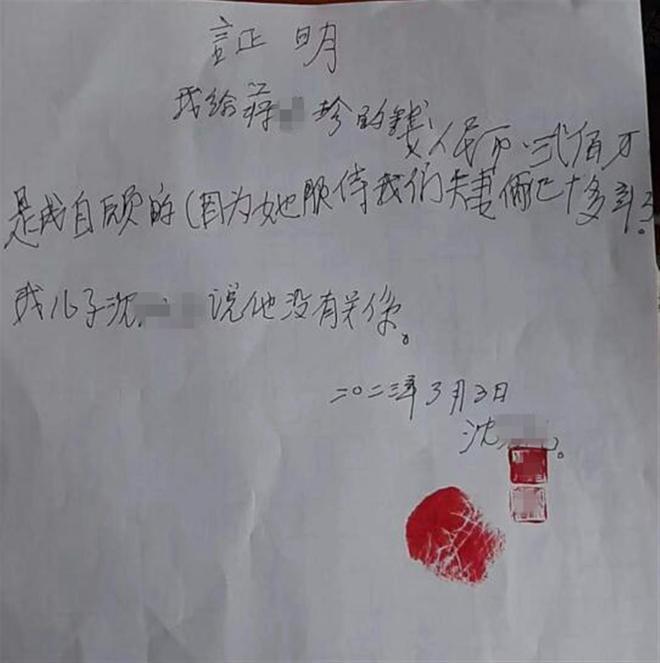 証明
我给蒋 珍的錢人民币.弍佰万
是我自愿的(因为她服侍我们夫妻俩已十多年了.
我儿子沈 说他没有关係。
二〇二三年3月3日
沈 。